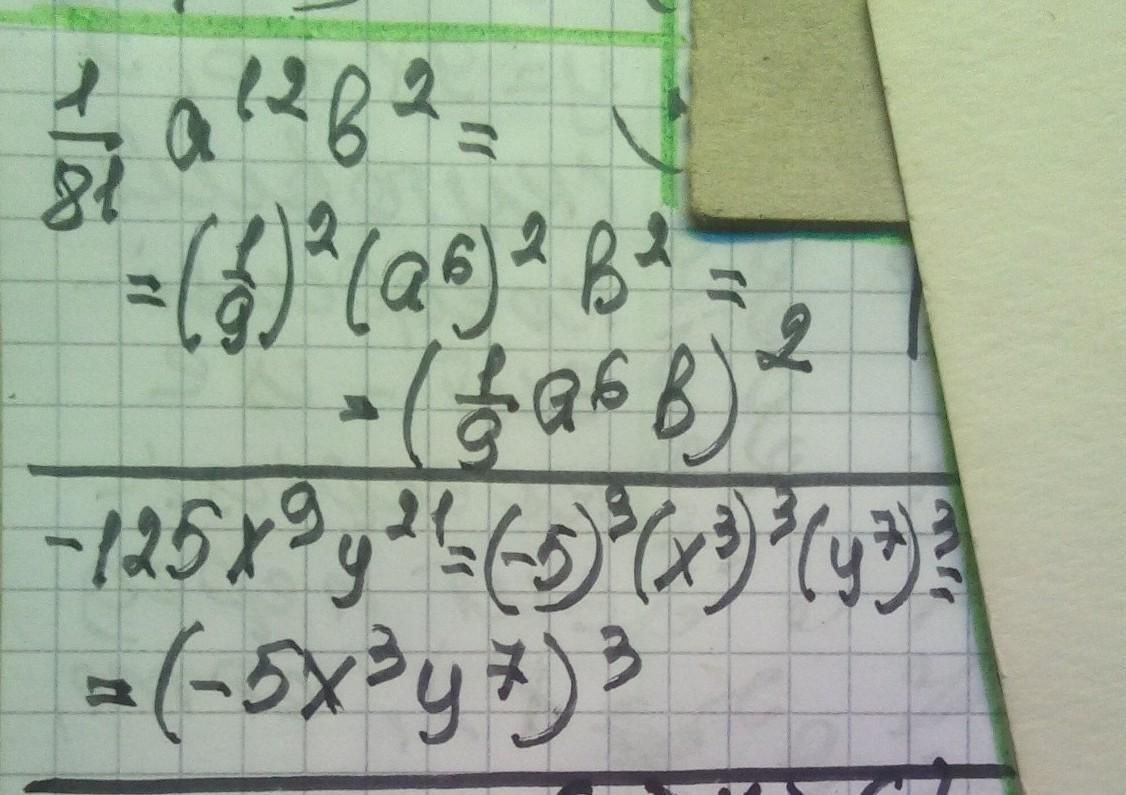 1/81 a¹²b² =
= (1/9)² (a⁶)² b² =
= (1/9 a⁶ b)²
-125x⁹y²¹ = (-5)³(x³)³(y⁷)³ =
= (-5x³y⁷)³